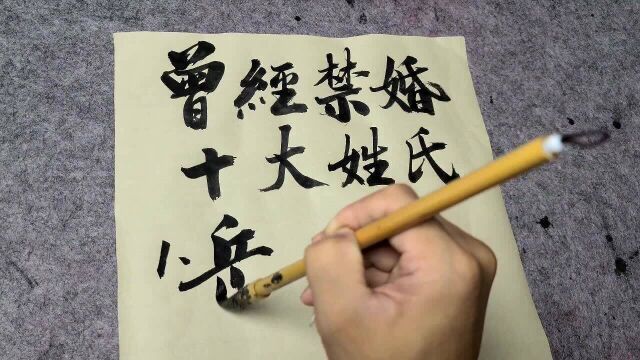 曾經禁婚
十大姓氏
1、岳